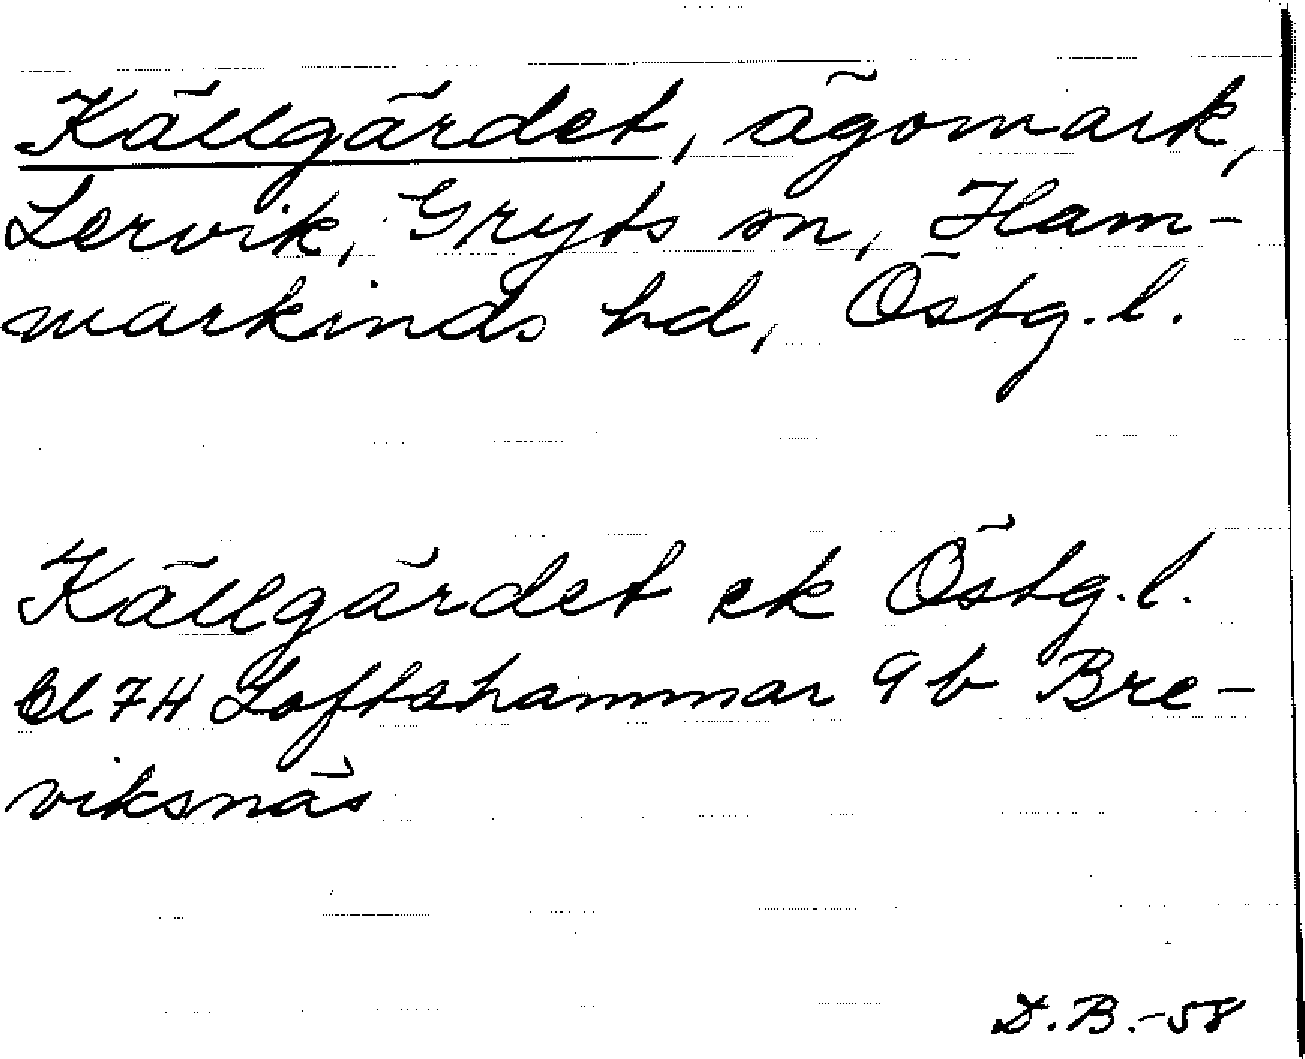 Källgärdet, ägomark,
Lervik, Gryts sn, Ham-
markinds hd, Östg. l.
Källgärdet ek Östg. l.
bl 7H Loftshammar 9b Bre-
viksnäs
D.B.-58